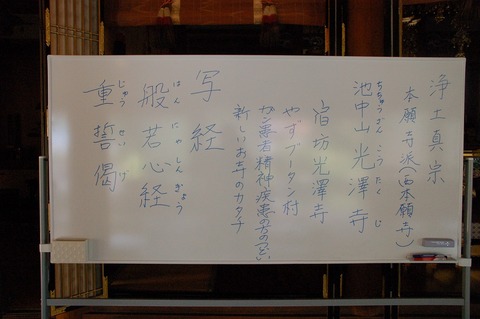 浄土真宗
本願寺派(西本願寺)
ちちゅうざん こう たく じ
池中山光澤寺
宿坊光澤寺
やずブータン村
ガン患者精神疾患の方のつどい
新しいお寺のカタチ
写経
はん にゃ しん ぎょう
般若心経
じゅう せい げ
重誓偈